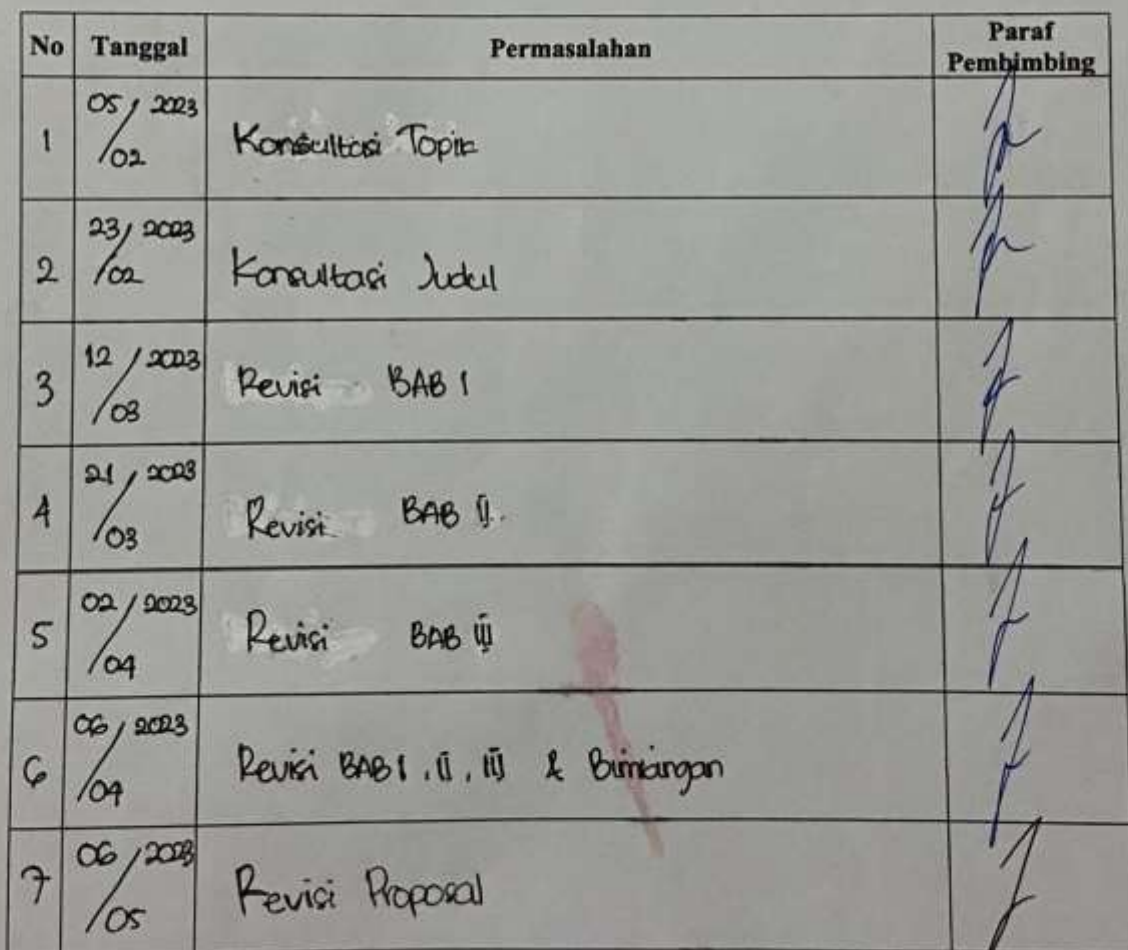 No Tanggal Permasalahan Paraf Pembimbing
1 05/02 2023 Konsultasi Topik
2 23/02 2023 Konsultasi Judul
3 12/03 2023 Revisi BAB I
4 21/03 2023 Revisi BAB II.
5 02/04 2023 Revisi BAB III
6 06/04 2023 Revisi BAB I, II, III & Bimbingan
7 06/05 2023 Revisi Proposal